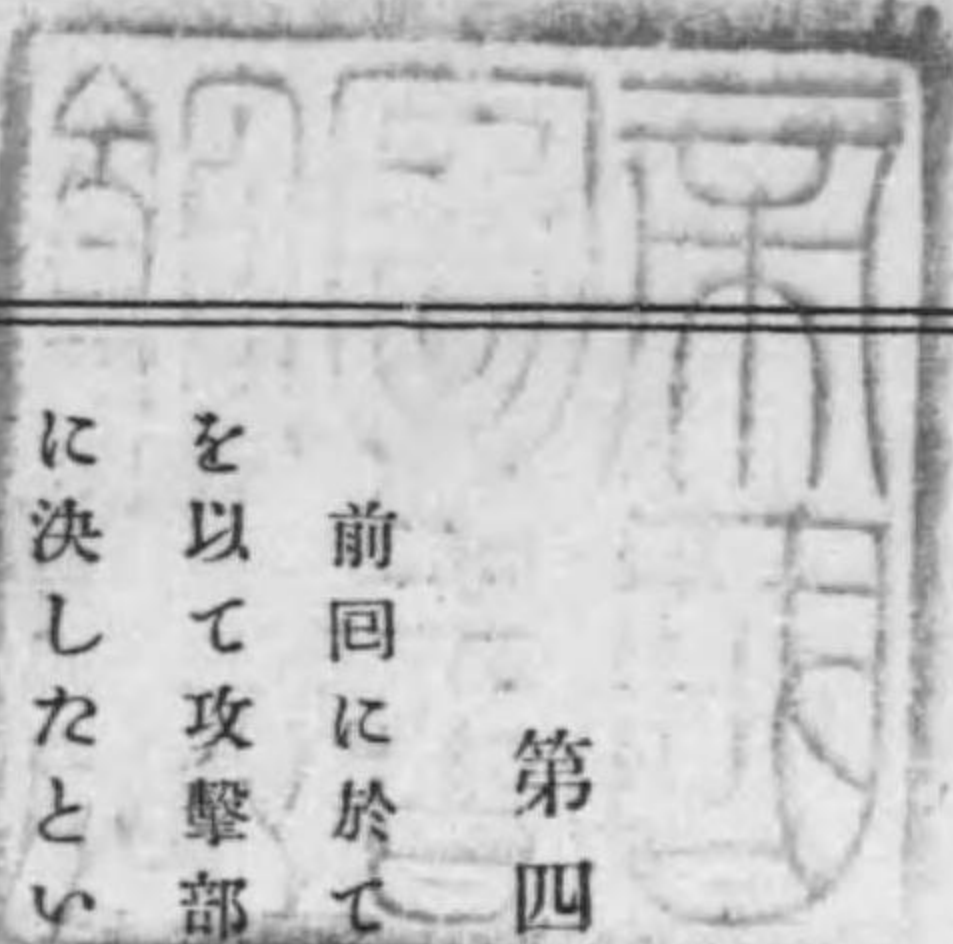 第四
前囘に於て
を以て攻擊部
に決したとい